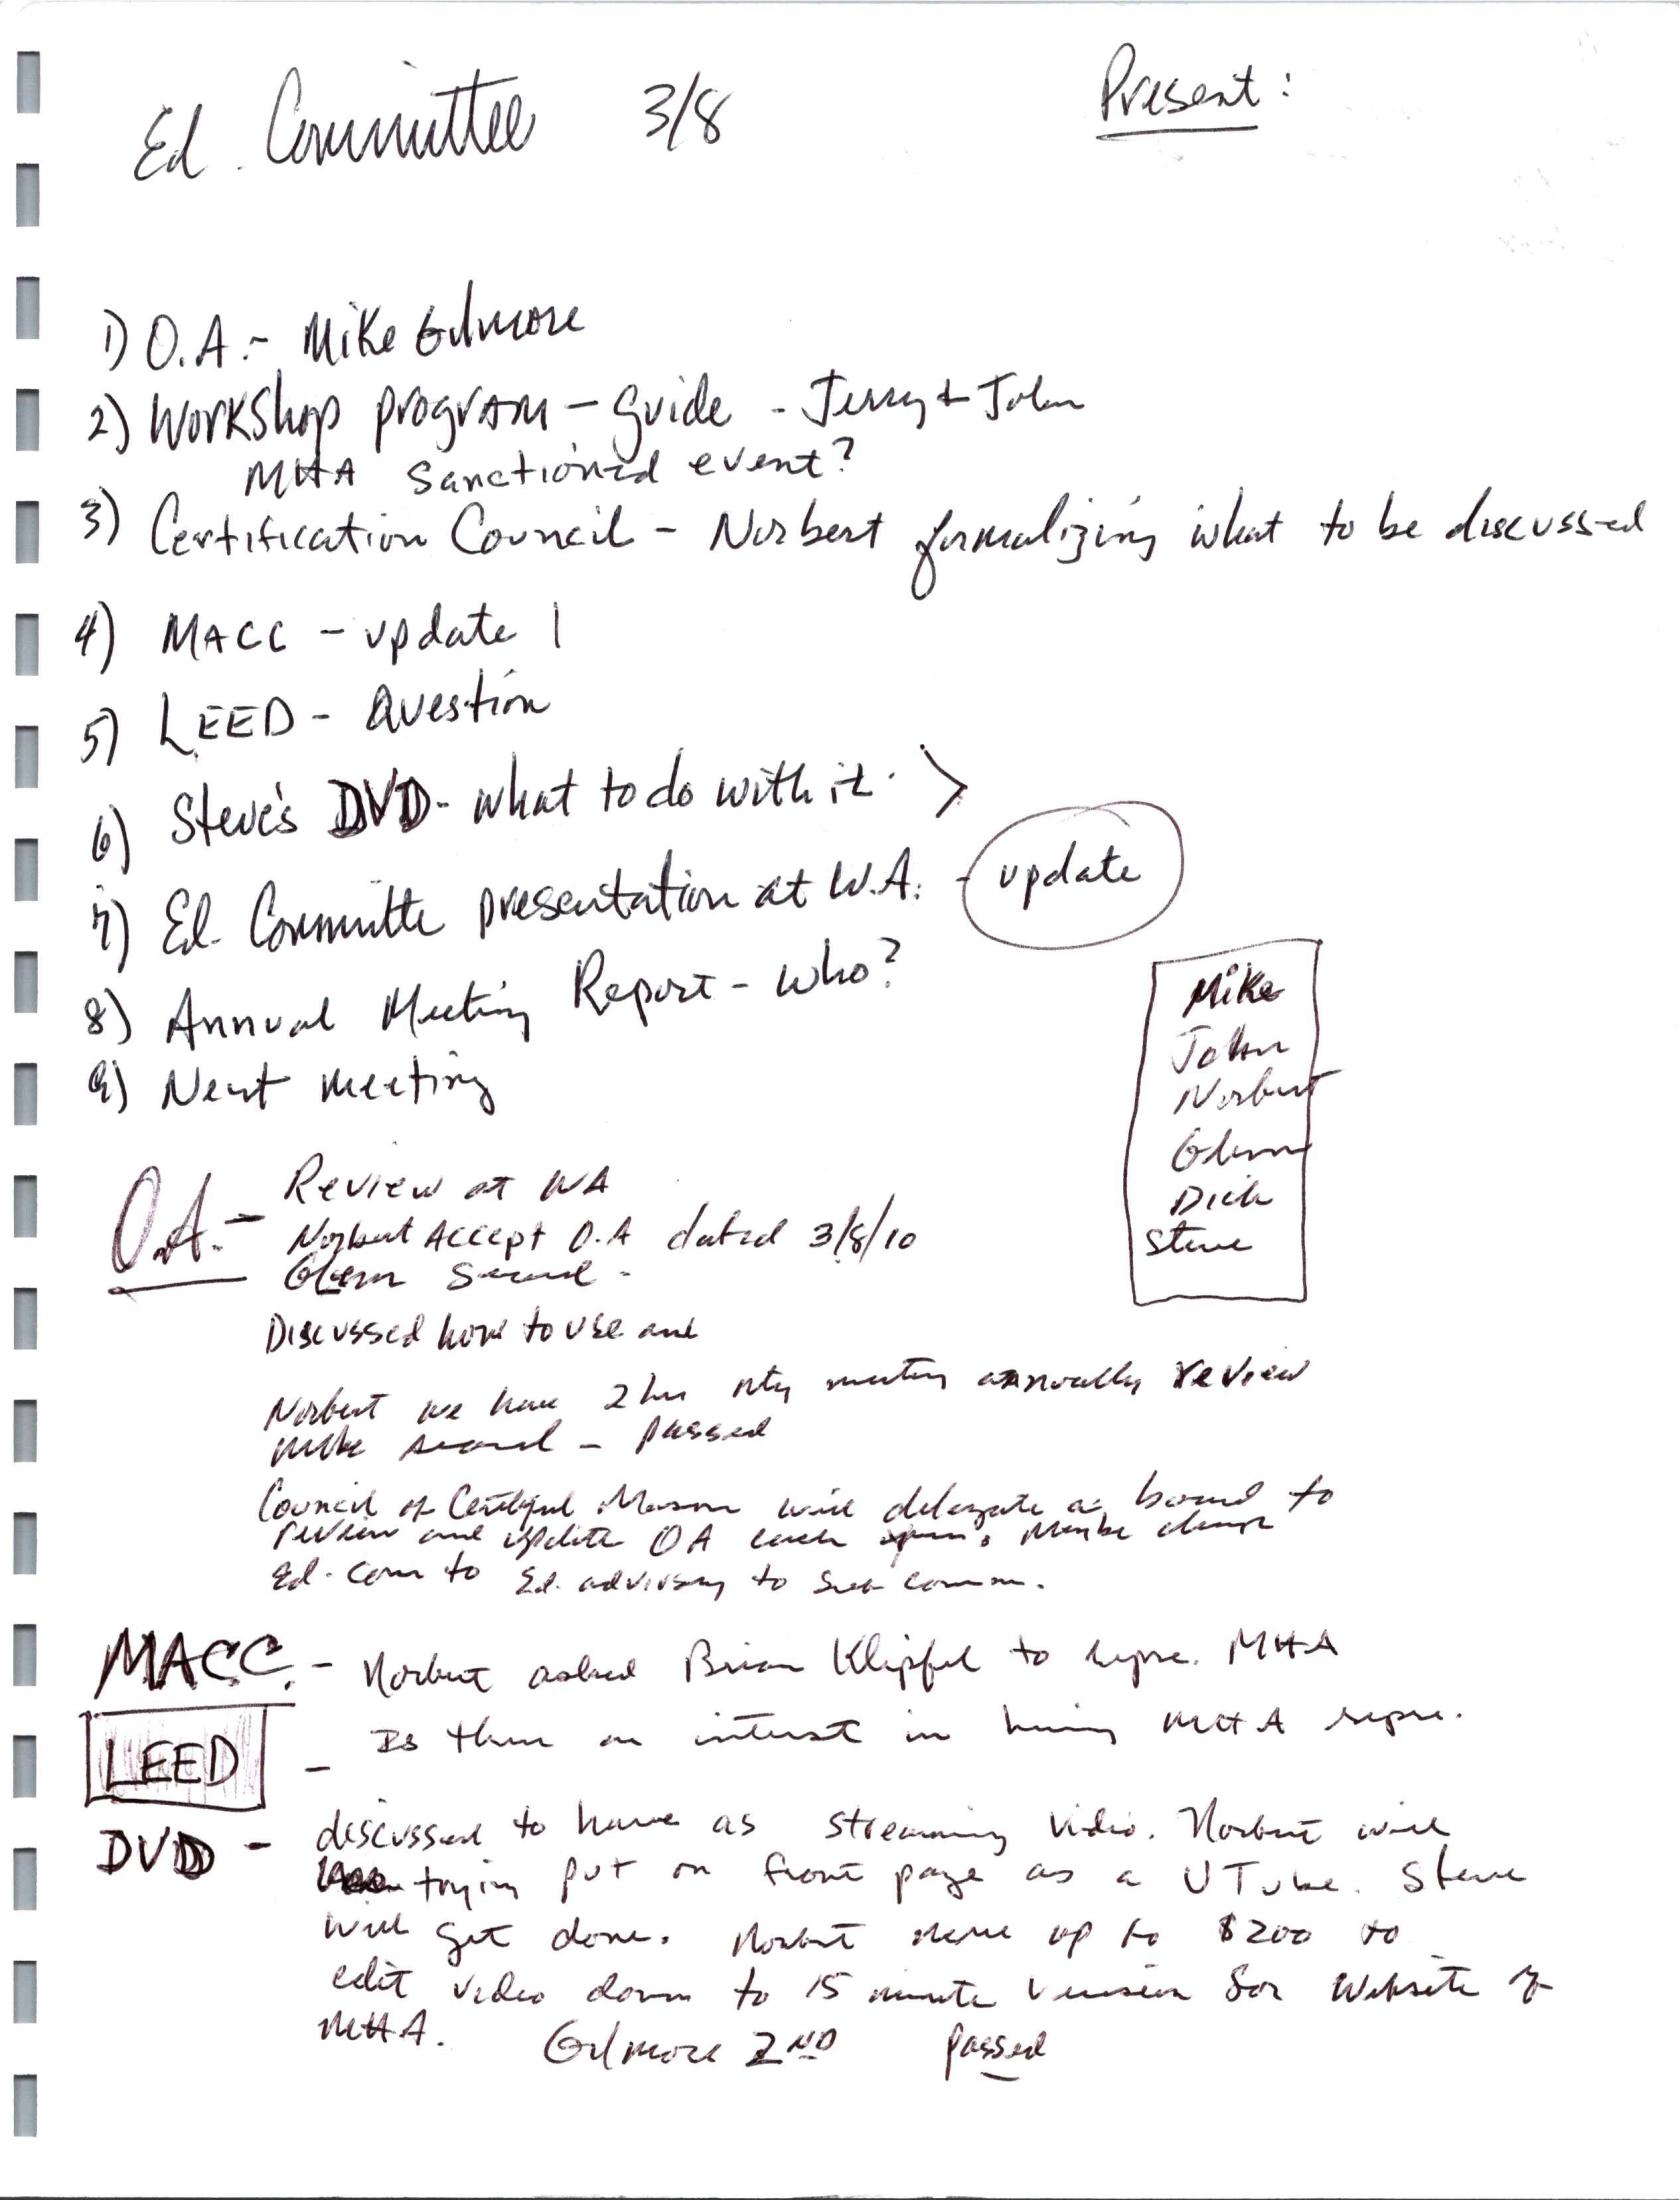 Ed. Committee 3/8
Present:
1) O.A. - Mike Gilmore
2) Workshop program - guide - Jerry + John
MHA Sanctioned event?
3) Certification Council - Norbert formalizing what to be discussed
4) MACC - update
5) LEED - Question
6) Steve's DVD - what to do with it.
7) Ed. Committe presentation at W.A. - update
8) Annual Meeting Report - who?
9) Next meeting
Mike
John
Norbert
Glenn
Dick
Steve
O.A. - Review at WA
Norbert Accept O.A dated 3/8/10
Glenn Second -
Discussed how to use and
Norbert we have 2 hr mtg annually review
Mike second - passed
Council of Masons will delegate a board to
review and update OA each Maybe change
Ed. Com to Ed. advisory to comm.
MACC. - Norbert asked Brian Klipfel to repre. MHA
LEED - Is there an interest in having MHA repre.
DVD - discussed to have as streaming video. Norbert will
trying put on front page as a UTube. Steve
will get done. Norbert move up to $200 to
edit video down to 15 minute version for Website of
MHA. Gilmore 2ND passed